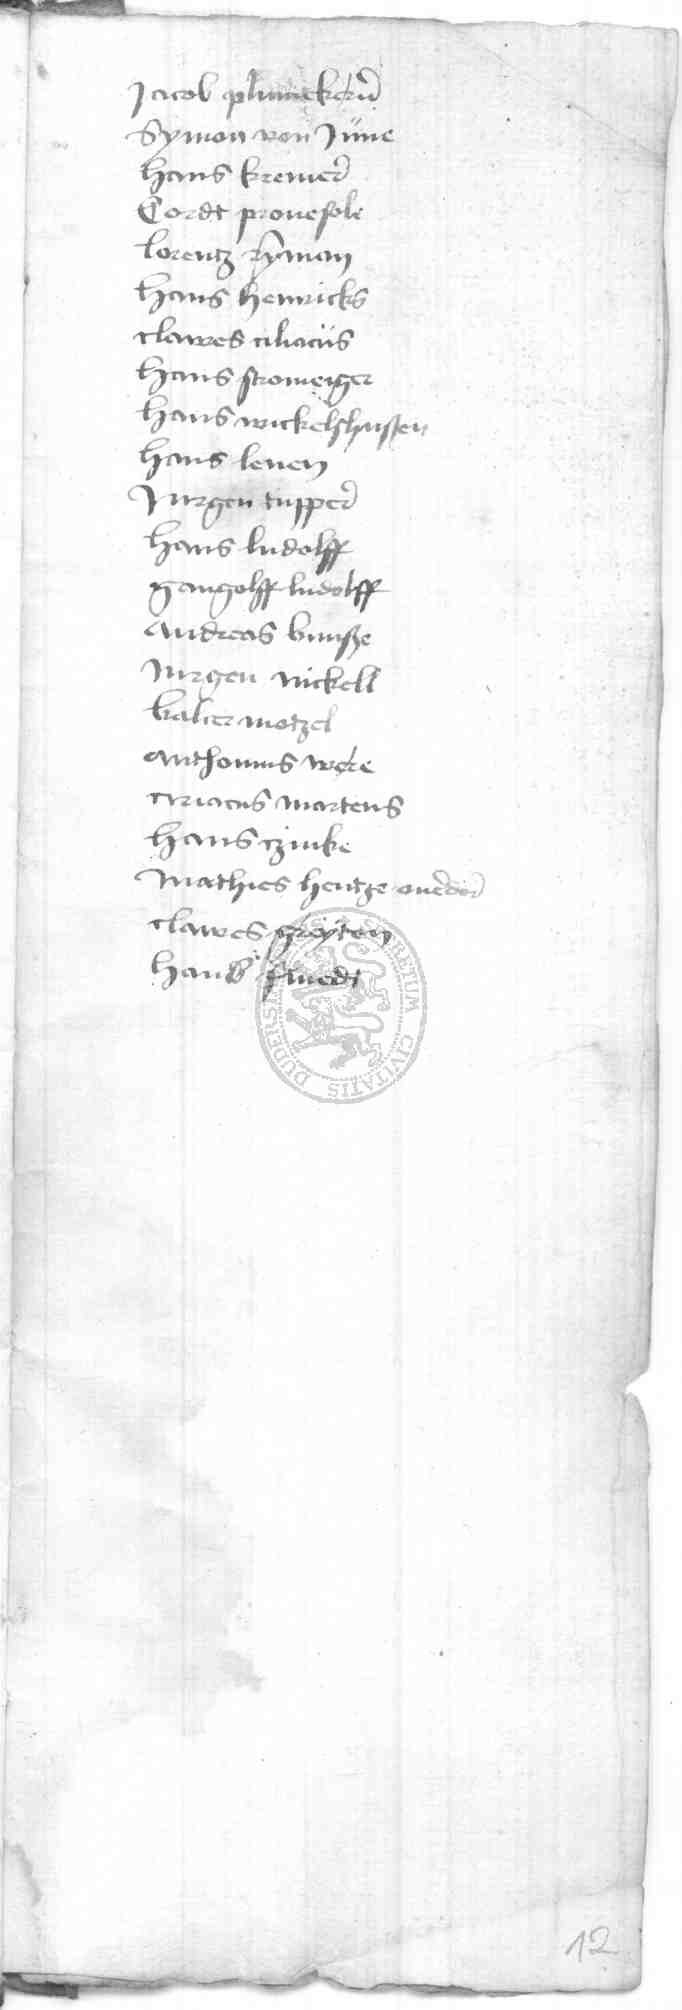 Jacob plumekerd
Symon von Jüne
hans kremer
Cordt prouesole
lorentz ryman
hans henricks
clawes ciliacus
hans stromeiger
hans wickelshusen
hans leuen
Jurgen tupper
hans ludolff
gangolff ludolff
andreas bunsze
Jurgen nickell
balter motzel
anthonius were
ciriacus martens
hans czinke
Mathies hentze
clawes greyten
hans smedt
SECRETUM CIVITATIS DUDERST
12